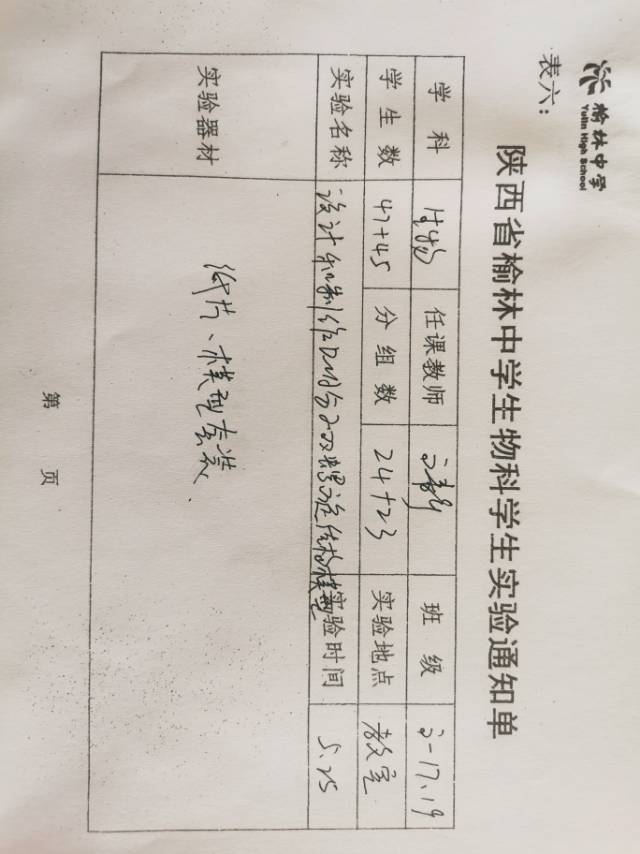 榆林中学
Yulin High School
表六：
陕西省榆林中学生物科学生实验通知单
学科 生物 任课教师 班级 高一17、19
学生数 47+45 分组数 24+23 实验地点 教室
实验名称 设计和制作DNA分子双螺旋结构模型 实验时间 5.25
实验器材 纸片、模型套装
第 页